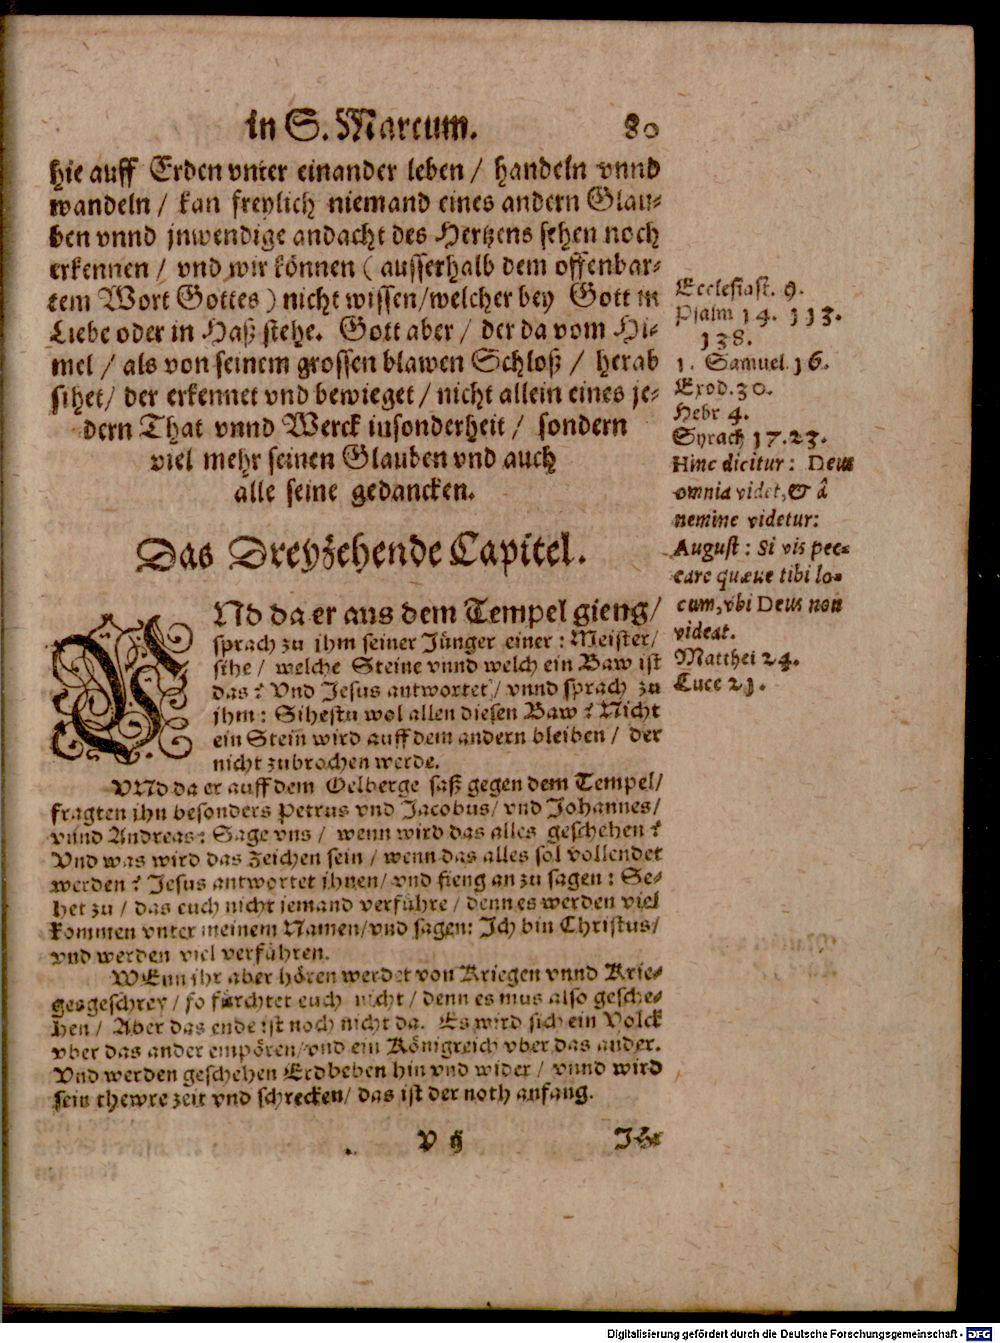 in S. Marcum. 80
hie auff Erden vnter einander leben / handeln vnnd
wandeln / kan freylich niemand eines andern Glau-
ben vnnd jnwendige andacht des Hertzens sehen noch
erkennen / vnd wir können ( ausserhalb dem offenbar-
tem Wort Gottes ) nicht wissen/welcher bey Gott in
Liebe oder in Haß stehe. Gott aber / der da vom Hi-
mel / als von seinem grossen blawen Schloß / herab
sihet/ der erkennet vnd bewieget / nicht allein eines je-
dern That vnnd Werck iusonderheit / sondern
viel mehr seinen Glauben vnd auch
alle seine gedancken.
Ecclesiast. 9.
Psalm 14. 113.
138.
1. Samuel. 16.
Exod. 30.
Hebr 4.
Syrach 17. 23.
Hinc dicitur: Deus
omnia videt, & â
nemine videtur:
August: Si vis pec-
care quæue tibi lo-
cum, vbi Deus non
videat.
Matthei 24.
Luce 21.
Das Dreyzehende Capitel.
VNd da er aus dem Tempel gieng/
sprach zu ihm seiner Jünger einer : Meister/
sihe / welche Steine vnnd welch ein Baw ist
das? Vnd Jesus antwortet / vnnd sprach zu
jhm : Sihestu wol allen diesen Baw ? Nicht
ein Stein wird auff dem andern bleiben / der
nicht zubrochen werde.
VNd da er auff dem Oelberge saß gegen dem Tempel/
fragten ihn besonders Petrus vnd Jacobus/ vnd Johannes/
vnnd Andreas: Sage vns / wenn wird das alles geschehen ?
Vnd was wird das Zeichen sein / wenn das alles sol vollendet
werden ? Jesus antwortet ihnen/ vnd fieng an zu sagen : Se-
het zu / das euch nicht jemand verführe / denn es werden viel
kommen vnter meinem Namen/vnd sagen: Ich bin Christus/
vnd werden viel verführen.
WEnn ihr aber hören werdet von Kriegen vnnd Krie-
gesgeschrey / so fürchtet euch nicht / denn es mus also gesche-
hen / Aber das ende ist noch nicht da. Es wird sich ein Volck
vber das ander empören/vnd ein Königreich vber das ander.
Vnd werden geschehen Erdbeben hin vnd wider / vnnd wird
sein thewre zeit vnd schrecken/ das ist der noth anfang.
V ij
Digitalisierung gefördert durch die Deutsche Forschungsgemeinschaft - DFG